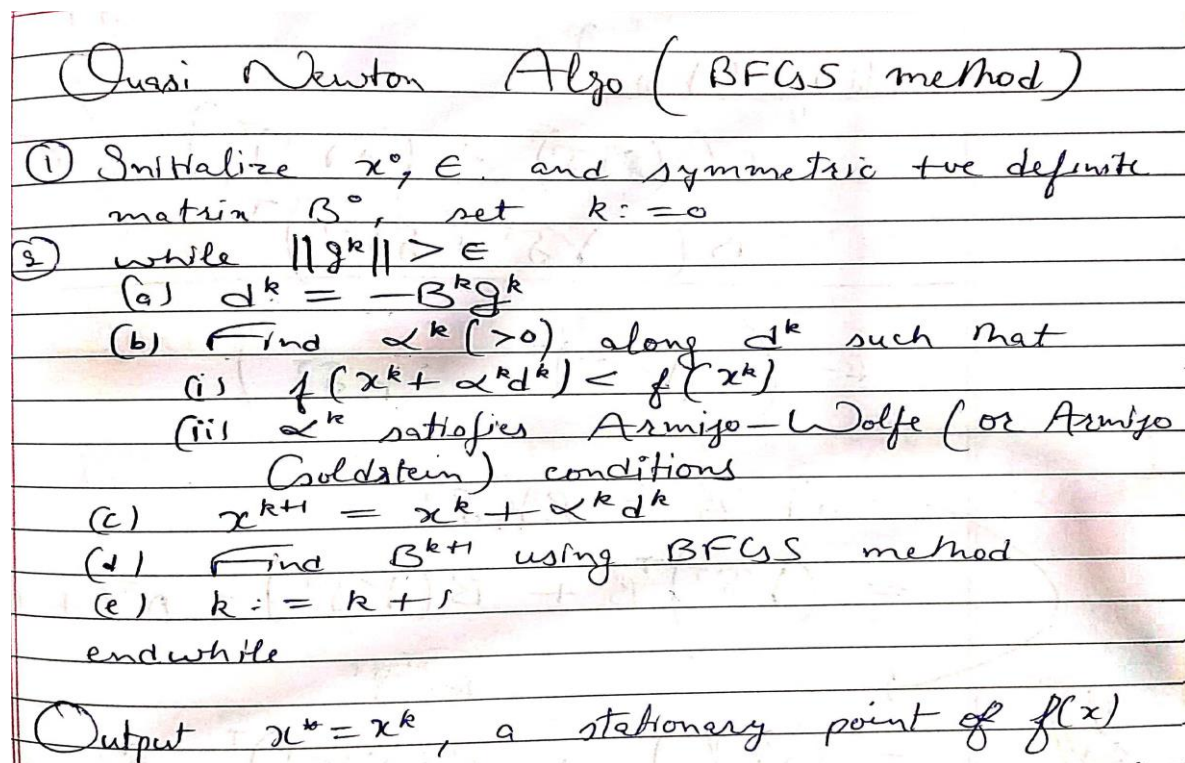 Quasi Newton Algo (BFGS method)
① Initialize x⁰, ϵ and symmetric +ve definite
matrix B⁰, set k:=0
② while ||gᵏ|| > ϵ
(a) dᵏ = -Bᵏgᵏ
(b) Find αᵏ (>0) along dᵏ such that
(i) f(xᵏ + αᵏdᵏ) < f(xᵏ)
(ii) αᵏ satisfies Armijo-Wolfe (or Armijo
Goldstein) conditions
(c) xᵏ⁺¹ = xᵏ + αᵏdᵏ
(d) Find Bᵏ⁺¹ using BFGS method
(e) k := k+1
endwhile
Output x* = xᵏ, a stationary point of f(x)